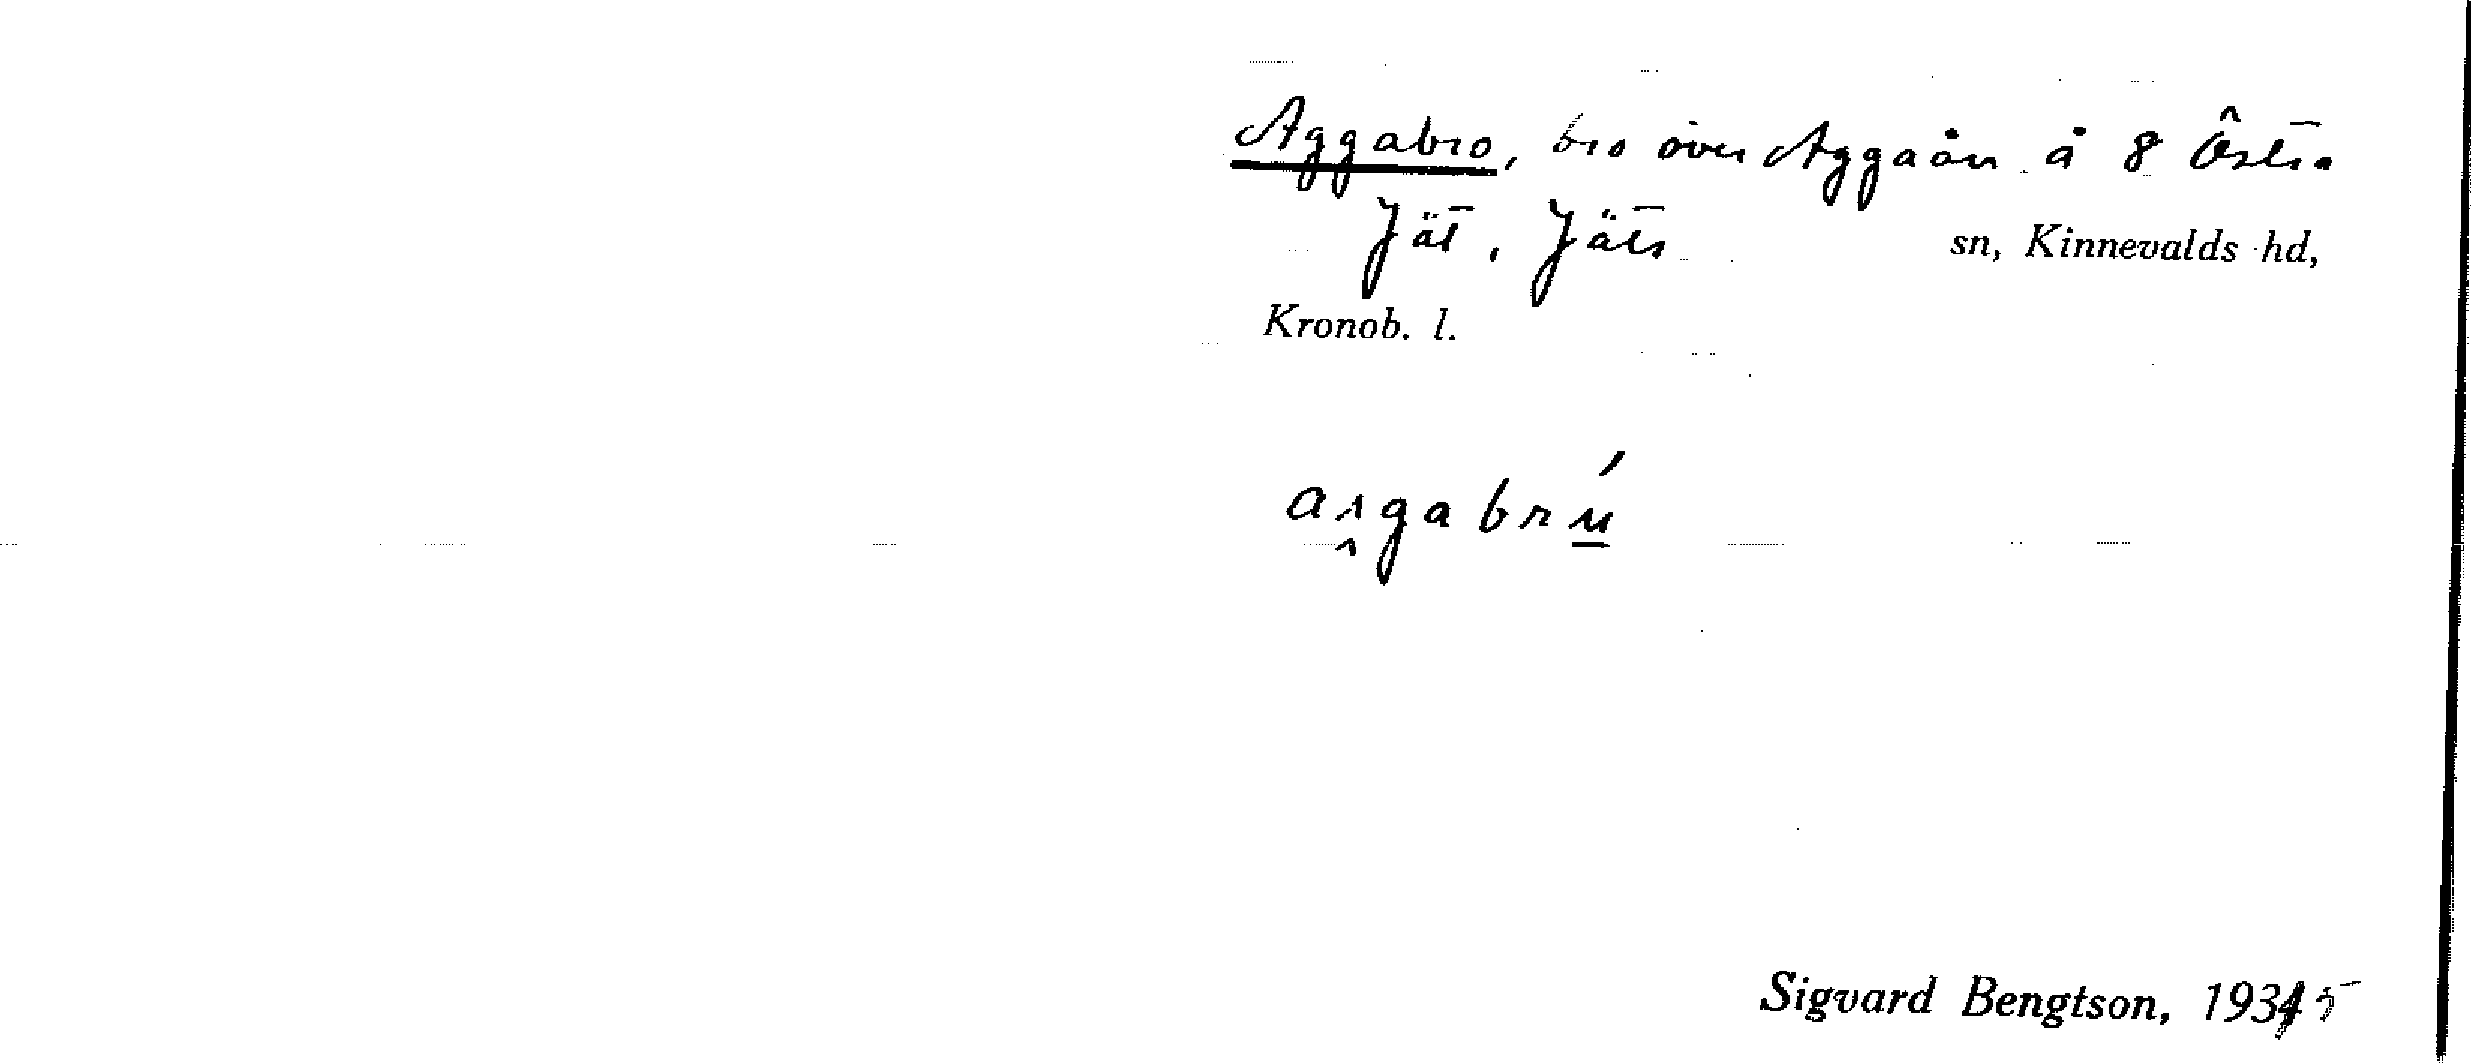 Aggabro, bro över Aggaån å 8 Östra
Jät, Jäts sn, Kinnevalds hd,
Kronob. l.
Sigvard Bengtson, 1935